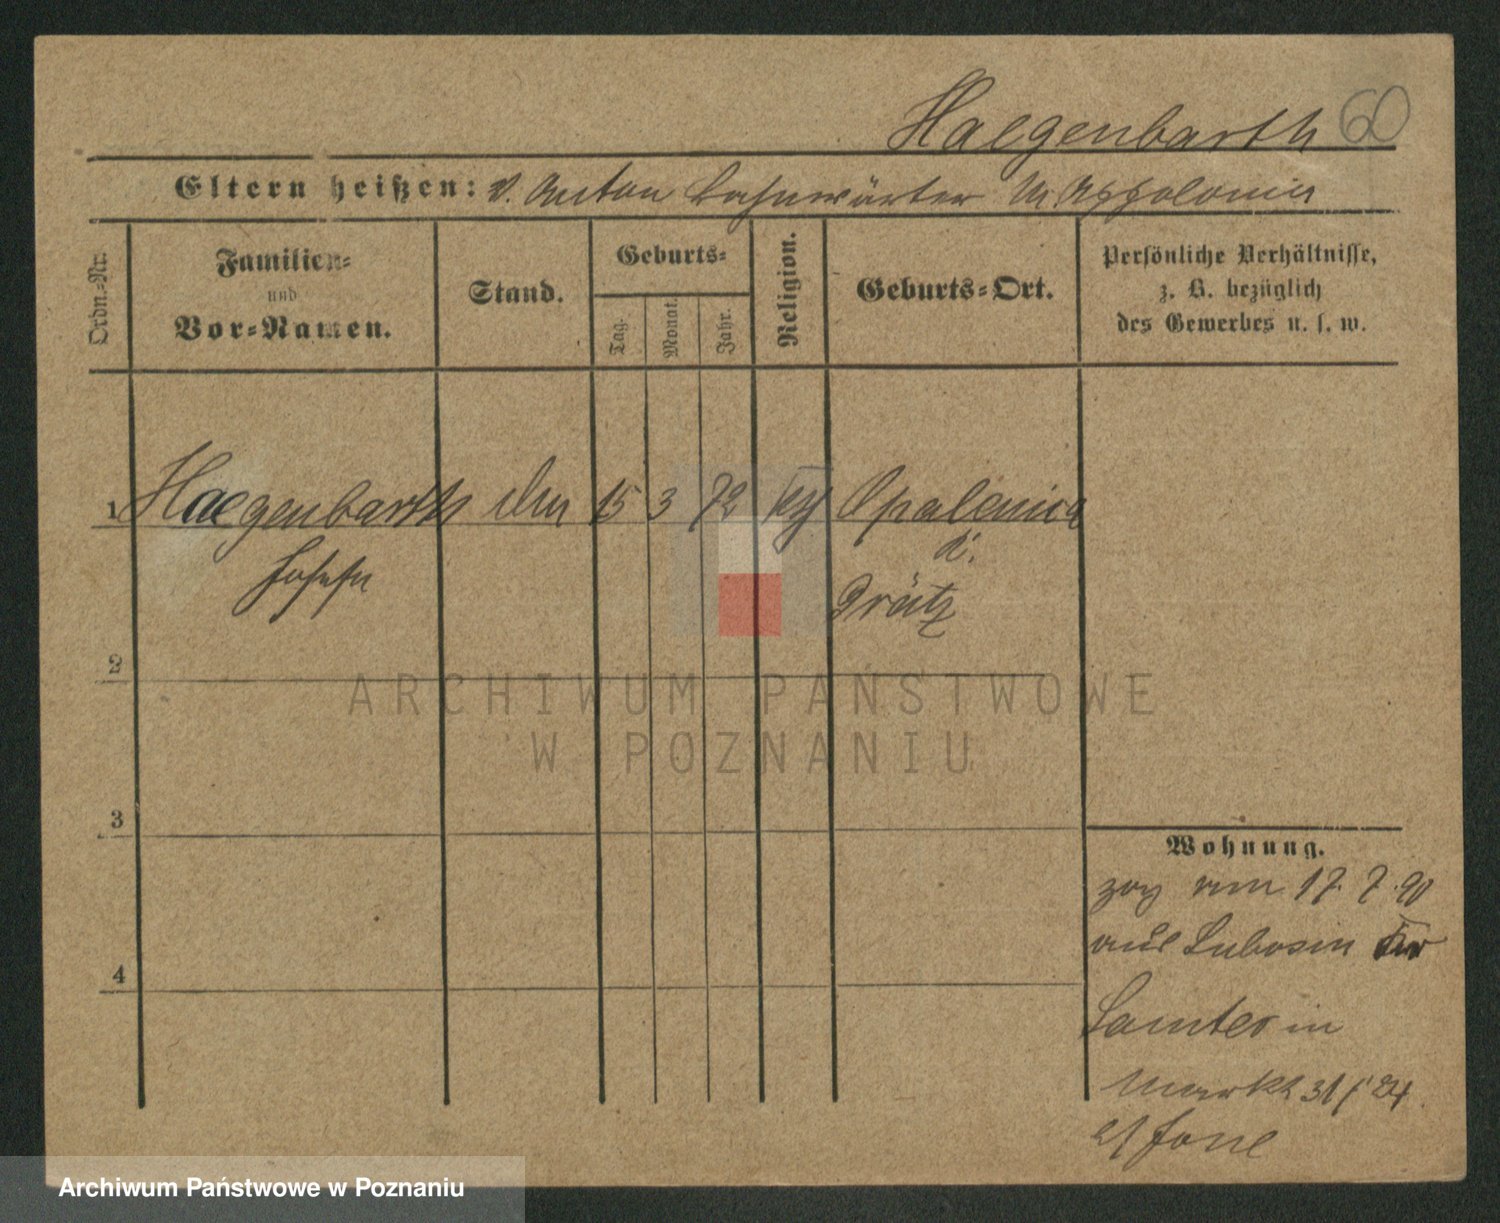 Haegenbarth 60
Eltern heißen: V. Anton Bahnwärter M Appolonia
Ordn.-Nr.
Familien-
und
Vor-Namen.
Stand.
Geburts-
Tag.
Monat.
Jahr.
Religion.
Geburts-Ort.
Persönliche Verhältnisse,
z. B. bezüglich
des Gewerbes u. s. w.
1 Haegenbarth 15 3 72 Opalenica
Josef
Grätz
2
3
4
Wohnung.
zog am 17. 7. 90
aus Lubosin
Samter in
Markt 31
ARCHIWUM PAŃSTWOWE
W POZNANIU
Archiwum Państwowe w Poznaniu